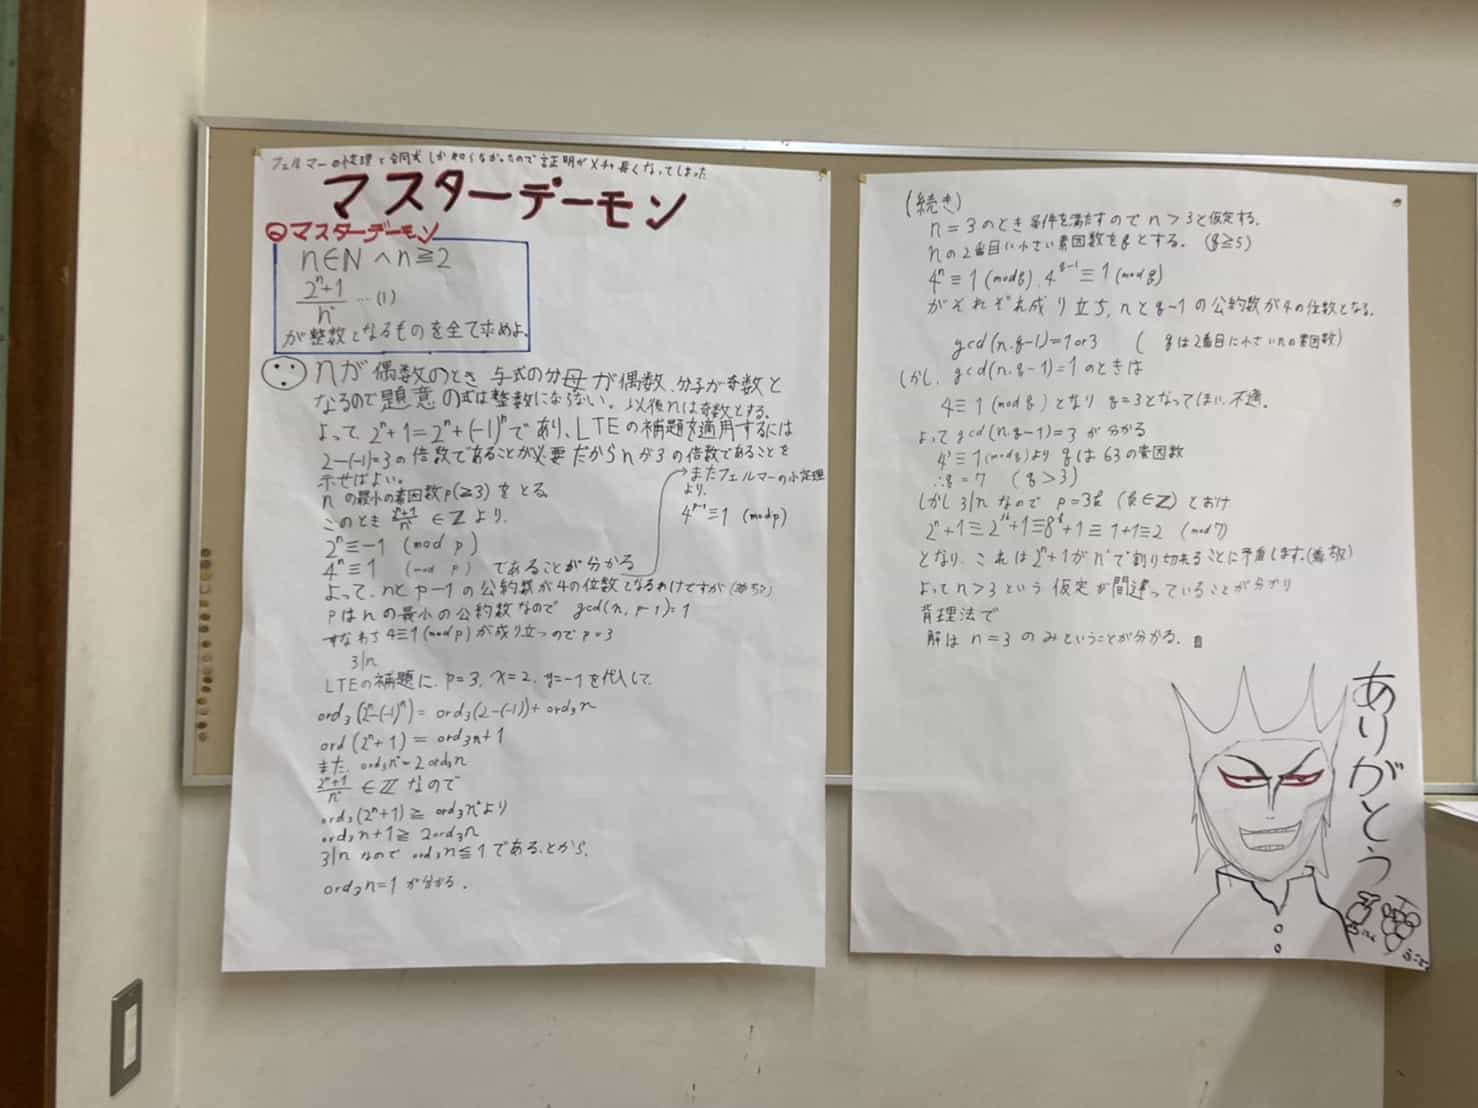 フェルマーの小定理と合同式しか知らなかったので証明がメチャ長くなってしまった
マスターデーモン
マスターデーモン
n∈N ∧ n≧2
2ⁿ+1/n² …(1)
が整数となるものを全て求めよ。
nが偶数のとき 与式の分母が偶数、分子が奇数と
なるので題意の式は整数にならない。以後nは奇数とする。
よって、2ⁿ+1=2ⁿ+(-1)ⁿであり、LTEの補題を適用するには
2-(-1)=3の倍数であることが必要だからnが3の倍数であることを
示せばよい。
nの最小の素因数p(≧3)をとる。
このとき 2ⁿ+1/n² ∈Z より、
2ⁿ≡-1 (mod p)
4ⁿ≡1 (mod p) であることが分かる
→またフェルマーの小定理
より、
4ᵖ⁻¹≡1 (mod p)
よって、nとp-1の公約数が4の位数となるわけですが
pはnの最小の公約数なので gcd(n, p-1)=1
すなわち4≡1(mod p)が成り立つのでp=3
3|n
LTEの補題に、p=3, x=2, y=-1を代入して、
ord₃(2ⁿ-(-1)ⁿ)=ord₃(2-(-1))+ord₃n
ord(2ⁿ+1)=ord₃n+1
また、ord₃n²=2ord₃n
2ⁿ+1/n² ∈Z なので
ord₃(2ⁿ+1)≧ord₃n²より
ord₃n+1≧2ord₃n
3|nなので ord₃n≦1であることから、
ord₃n=1が分かる。
(続き)
n=3のとき条件を満たすのでn>3と仮定する。
nの2番目に小さい素因数をqとする。(q≧5)
4ⁿ≡1 (mod q), 4^(q-1)≡1 (mod q)
がそれぞれ成り立ち、nとq-1の公約数が4の位数となる。
gcd(n,q-1)=1or3 (qは2番目に小さいnの素因数)
しかし、gcd(n,q-1)=1のときは
4≡1 (mod q)となり q=3となってしまい不適。
よってgcd(n,q-1)=3が分かる
4³≡1(mod q)より qは63の素因数
∴q=7 (q>3)
しかし3|nなので
2ⁿ+1≡ ≡ ≡1+1≡2 (mod7)
となり、これは2ⁿ+1がn²で割り切れることに矛盾します。
よってn>3という仮定が間違っていることが分かり
背理法で
解はn=3のみということが分かる。
ありがとう